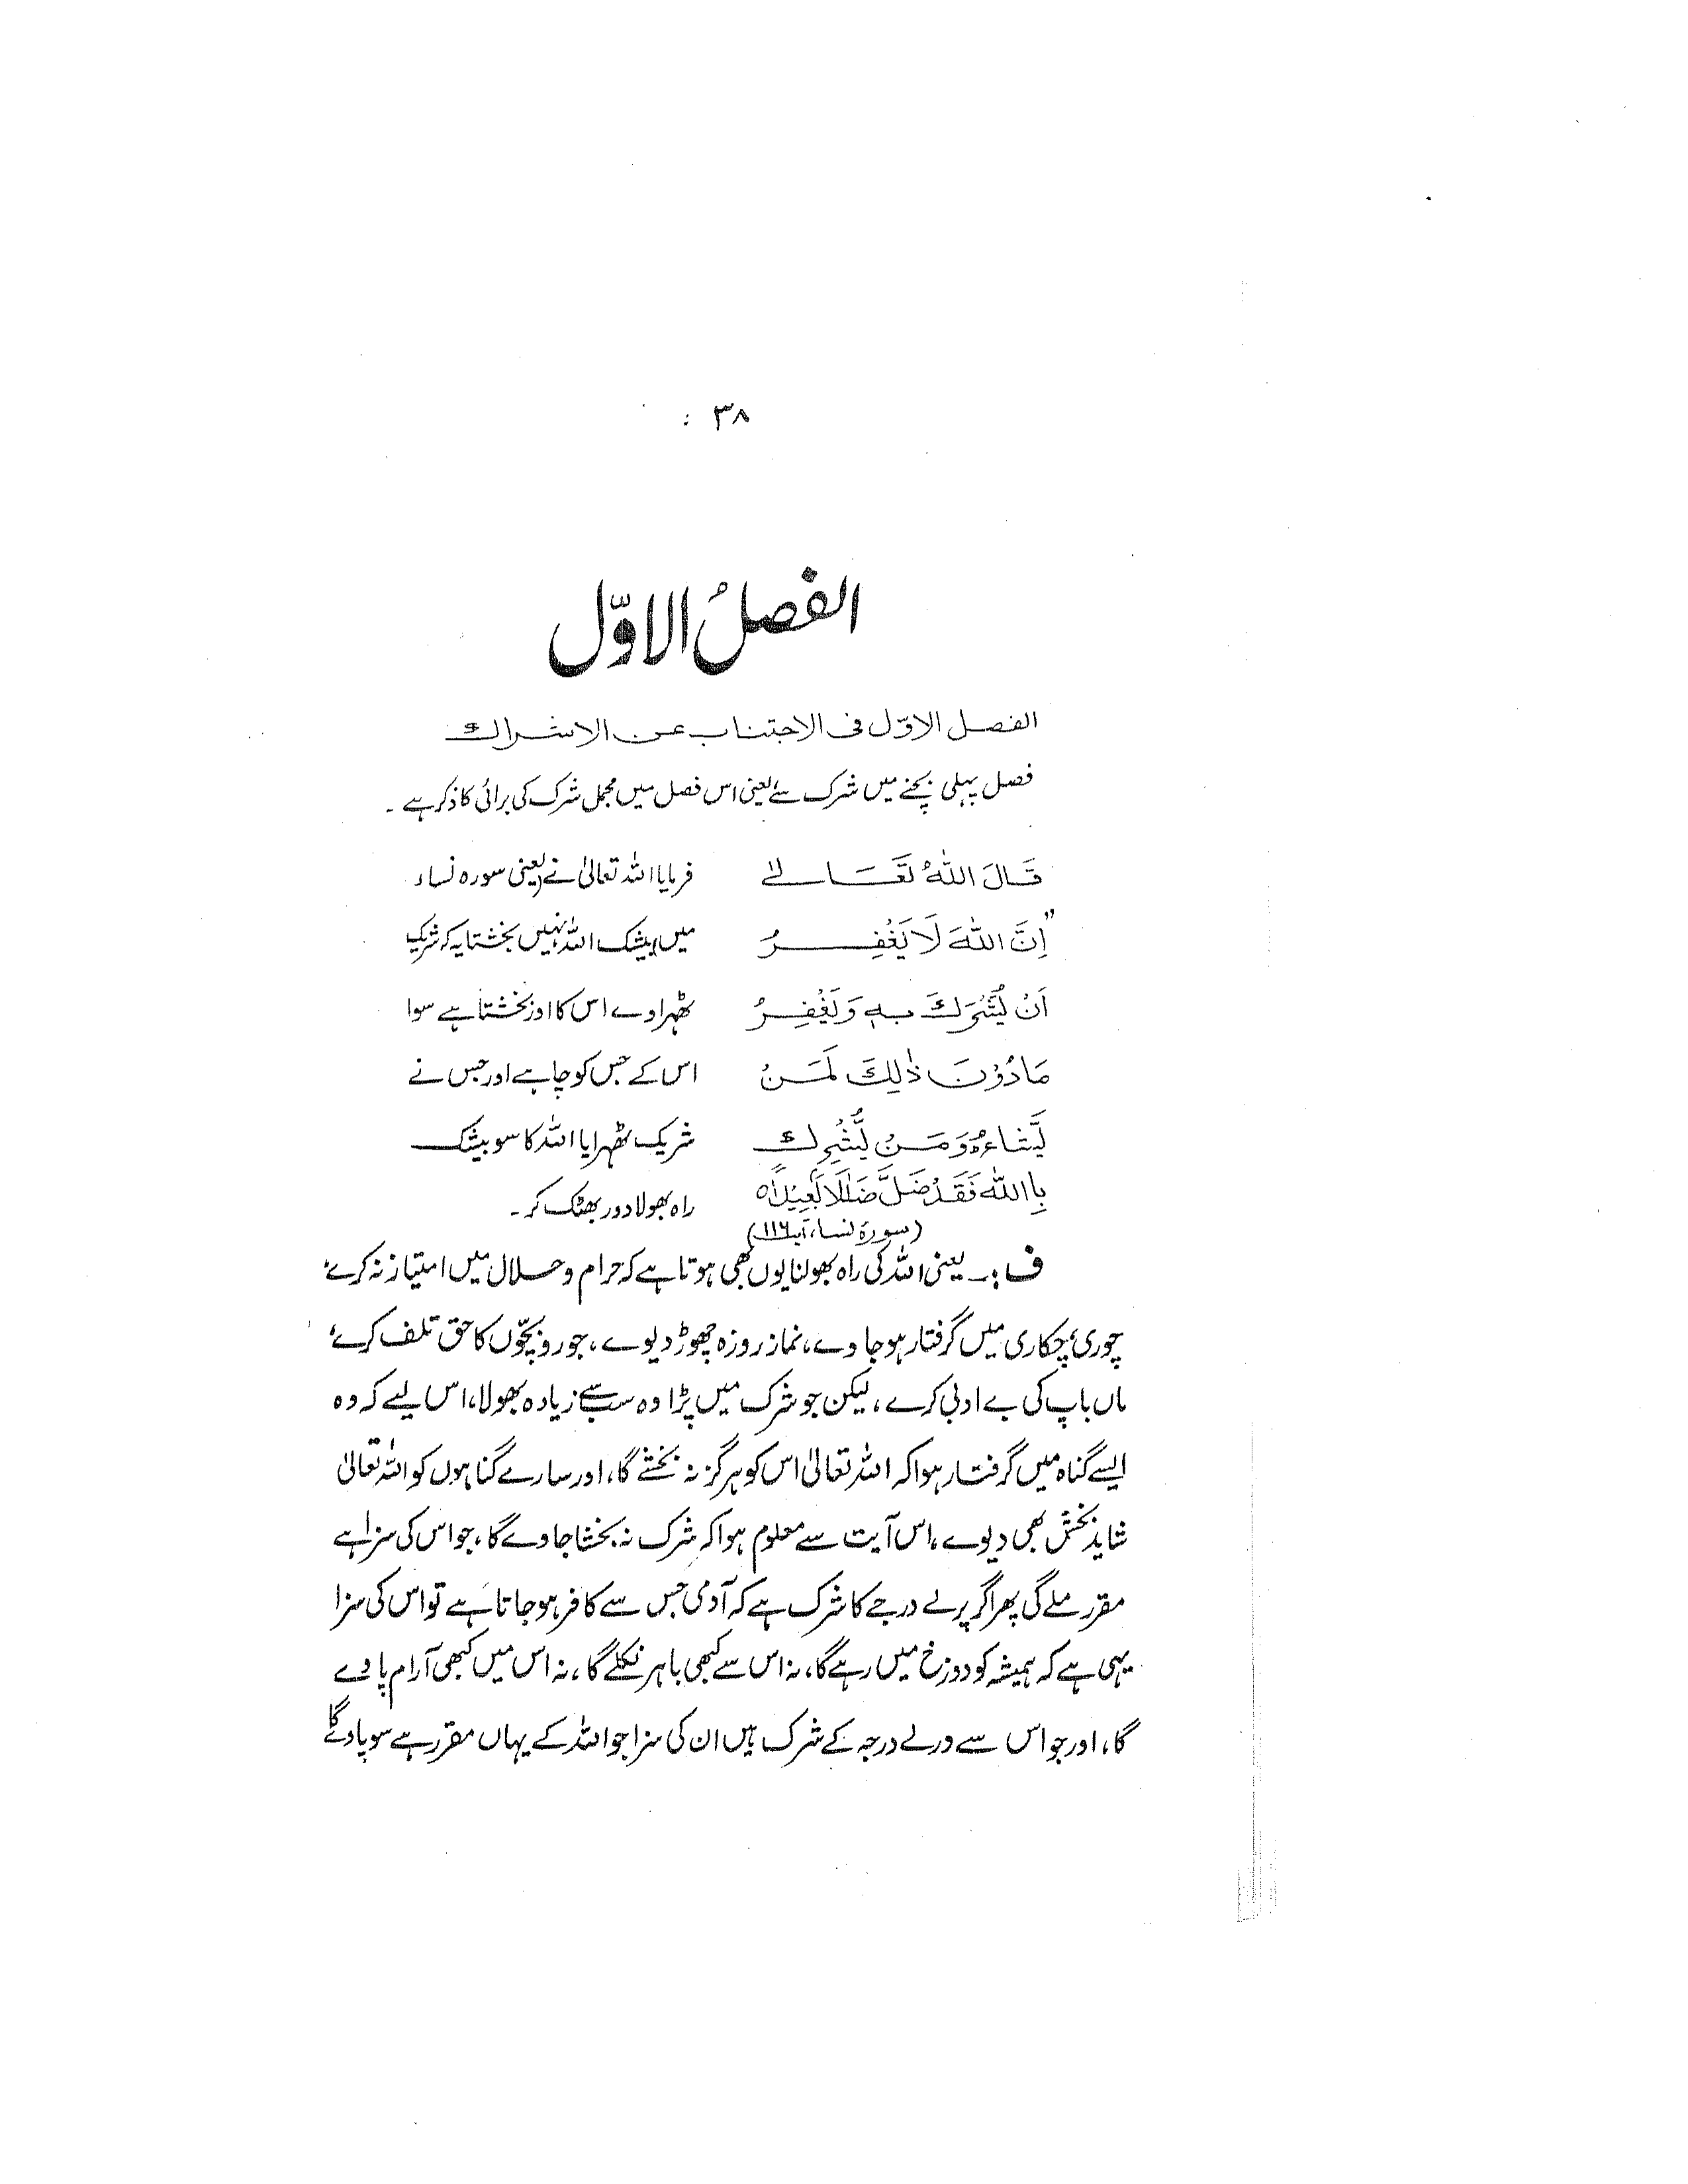 ۳۸
الفصلُ الاوّل
الفصل الاوّل فی الاجتناب عن الاشراك
فصل پہلی بچنے میں شرک سے یعنی اس فصل میں مجمل شرک کی برائی کا ذکر ہے ۔
قَالَ اللّٰهُ تَعَالٰے
فرمایا اللہ تعالیٰ نے یعنی سورہ نساء
"اِنَّ اللّٰهَ لَا يَغْفِرُ
میں بیشک اللہ نہیں بخشتا یہ کہ شریک
اَنْ يُّشْرَكَ بِهٖ وَيَغْفِرُ
ٹھہراوے اس کا اور بخشتا ہے سوا
مَا دُوْنَ ذٰلِكَ لِمَنْ
اس کے جس کو چاہے اور جس نے
يَّشَاءُ وَمَنْ يُّشْرِكْ
شریک ٹھہرایا اللہ کا سو بیشک
بِاللّٰهِ فَقَدْ ضَلَّ ضَلٰلًا بَعِيْدًاه
راہ بھولا دور بھٹک کر ۔
(سورۃ نساء، آیت ۱۱۶)
ف :۔ یعنی اللہ کی راہ بھولنا یوں بھی ہوتا ہے کہ حرام و حلال میں امتیاز نہ کرے،
چوری، چکاری میں گرفتار ہو جاوے، نماز روزہ چھوڑ دیوے، جورو بچّوں کا حق تلف کرے،
ماں باپ کی بے ادبی کرے، لیکن جو شرک میں پڑا وہ سب سے زیادہ بھولا، اس لیے کہ وہ
ایسے گناہ میں گرفتار ہوا کہ اللہ تعالیٰ اس کو ہرگز نہ بخشے گا، اور سارے گناہوں کو اللہ تعالیٰ
شاید بخش بھی دیوے، اس آیت سے معلوم ہوا کہ شرک نہ بخشا جاوے گا، جو اس کی سزا ہے
مقرر ملے گی پھر اگر پرلے درجے کا شرک ہے کہ آدمی جس سے کافر ہو جاتا ہے تو اس کی سزا
یہی ہے کہ ہمیشہ کو دوزخ میں رہے گا، نہ اس سے کبھی باہر نکلے گا، نہ اس میں کبھی آرام پاوے
گا، اور جو اس سے ورلے درجہ کے شرک ہیں ان کی سزا جو اللہ کے یہاں مقرر ہے سو پاوے گا